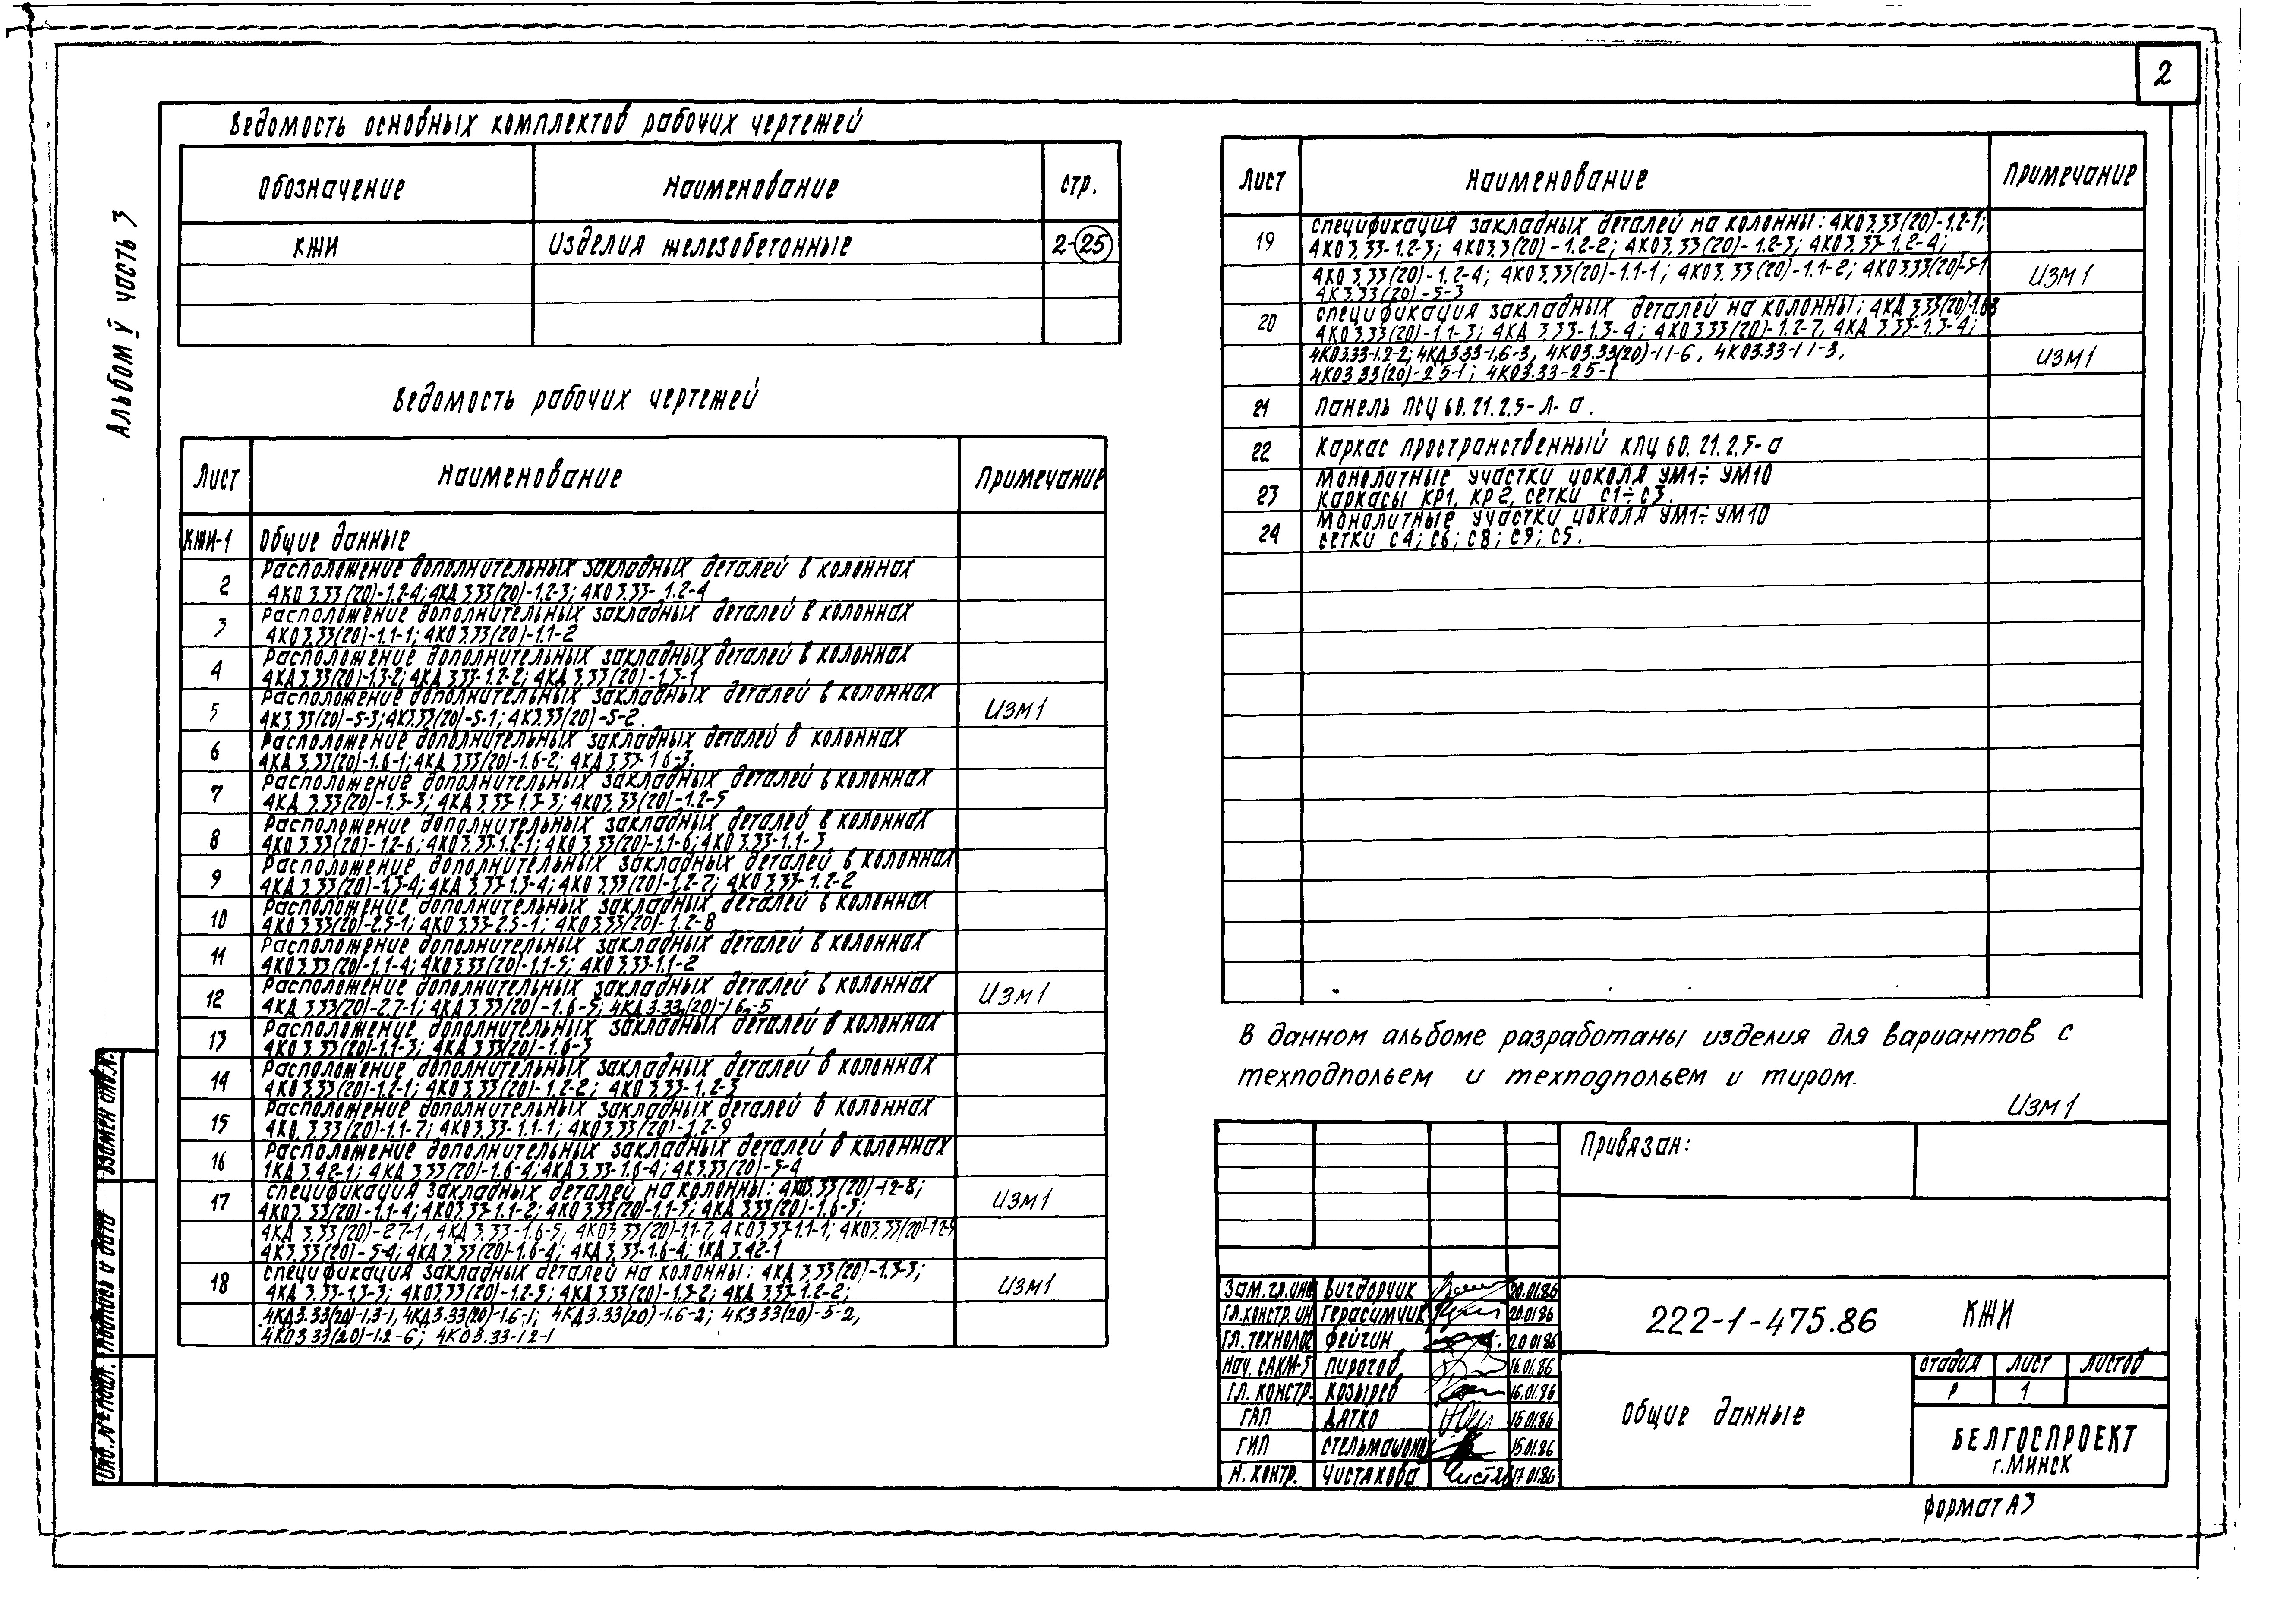 2
Альбом V часть 3
Ведомость основных комплектов рабочих чертежей
Обозначение Наименование стр.
КЖИ Изделия железобетонные 2-25
Ведомость рабочих чертежей
Лист Наименование Примечание
КЖИ-1 Общие данные
2 Расположение дополнительных закладных деталей в колоннах
4КО 3.33(20)-1.2-4; 4КД 3.33(20)-1.2-3; 4КО 3.33-1.2-4
3 Расположение дополнительных закладных деталей в колоннах
4КО 3.33(20)-1.1-1; 4КО 3.33(20)-1.1-2
4 Расположение дополнительных закладных деталей в колоннах
4КД 3.33(20)-1.3-2; 4КД 3.33-1.2-2; 4КД 3.33(20)-1.3-1
5 Расположение дополнительных закладных деталей в колоннах
4К3.33(20)-5-3; 4К3.33(20)-5-1; 4К3.33(20)-5-2. Изм1
6 Расположение дополнительных закладных деталей в колоннах
4КД 3.33(20)-1.6-1; 4КД 3.33(20)-1.6-2; 4КД 3.33-1.6-3.
7 Расположение дополнительных закладных деталей в колоннах
4КД 3.33(20)-1.3-3; 4КД 3.33-1.3-3; 4КО3.33(20)-1.2-5
8 Расположение дополнительных закладных деталей в колоннах
4КО 3.33(20)-1.2-6; 4КО3.33-1.2-1; 4КО3.33(20)-1.1-6; 4КО3.33-1.1-3
9 Расположение дополнительных закладных деталей в колоннах
4КД 3.33(20)-1.3-4; 4КД 3.33-1.3-4; 4КО 3.33(20)-1.2-7; 4КО 3.33-1.2-2
10 Расположение дополнительных закладных деталей в колоннах
4КО 3.33(20)-2.5-1; 4КО 3.33-2.5-1; 4КО3.33(20)-1.2-8
11 Расположение дополнительных закладных деталей в колоннах
4КО3.33(20)-1.1-4; 4КО3.33(20)-1.1-5; 4КО3.33-1.1-2
12 Расположение дополнительных закладных деталей в колоннах
4КД 3.33(20)-2.7-1; 4КД 3.33(20)-1.6-5; 4КД3.33(20)-1.6-5 Изм1
13 Расположение дополнительных закладных деталей в колоннах
4КО 3.33(20)-1.1-3; 4КД 3.33(20)-1.6-3
14 Расположение дополнительных закладных деталей в колоннах
4КО3.33(20)-1.2-1; 4КО3.33(20)-1.2-2; 4КО3.33-1.2-3
15 Расположение дополнительных закладных деталей в колоннах
4КО.3.33(20)-1.1-7; 4КО3.33-1.1-1; 4КО3.33(20)-1.2-9
16 Расположение дополнительных закладных деталей в колоннах
1КД 3.42-1; 4КД 3.33(20)-1.6-4; 4КД 3.33-1.6-4; 4К3.33(20)-5-4
17 спецификация закладных деталей на колонны: 4КО3.33(20)-1.2-8;
4КО3.33(20)-1.1-4; 4КО3.33-1.1-2; 4КО 3.33(20)-1.1-5; 4КД 3.33(20)-1.6-5; Изм1
4КД 3.33(20)-2.7-1, 4КД 3.33-1.6-5, 4КО3.33(20)-1.1-7, 4КО3.33-1.1-1; 4КО3.33(20)-1.2-9
4К3.33(20)-5-4; 4КД 3.33(20)-1.6-4; 4КД 3.33-1.6-4; 1КД 3.42-1
18 спецификация закладных деталей на колонны: 4КД 3.33(20)-1.3-3;
4КД 3.33-1.3-3; 4КО3.33(20)-1.2-5; 4КД 3.33(20)-1.3-2; 4КД 3.33-1.2-2; Изм1
4КД3.33(20)-1.3-1, 4КД3.33(20)-1.6-1; 4КД3.33(20)-1.6-2; 4К3.33(20)-5-2,
4КО3.33(20)-1.2-6; 4КО3.33-1.2-1
Лист Наименование Примечание
19 спецификация закладных деталей на колонны: 4КО3.33(20)-1.2-1;
4КО3.33-1.2-3; 4КО3.3(20)-1.2-2; 4КО3.33(20)-1.2-3; 4КО3.33-1.2-4;
4КО 3.33(20)-1.2-4; 4КО3.33(20)-1.1-1; 4КО3.33(20)-1.1-2; 4КО3.33(20)-5-1 Изм1
4К3.33(20)-5-3
20 спецификация закладных деталей на колонны: 4КД 3.33(20)-1.6-3
4КО3.33(20)-1.1-3; 4КД 3.33-1.3-4; 4КО3.33(20)-1.2-7, 4КД 3.33-1.3-4;
4КО3.33-1.2-2; 4КД3.33-1.6-3, 4КО3.33(20)-1.1-6, 4КО3.33-1.1-3, Изм1
4КО3.33(20)-2.5-1; 4КО3.33-2.5-1
21 Панель ПСЦ 60.21.2.5-Л-а.
22 Каркас пространственный КПЦ 60.21.2.5-а
23 Монолитные участки цоколя УМ1÷УМ10
Каркасы КР1, КР2, сетки С1÷С3.
24 Монолитные участки цоколя УМ1÷УМ10
сетки С4; С6; С8; С9; С5.
В данном альбоме разработаны изделия для вариантов с
техподпольем и техподпольем и тиром.
Изм1
Привязан:
Зам.гл.инж Вигдорчик 20.01.86
Гл.констр.ин Герасимчик 20.01.86
Гл.технолог Фейгин 20.01.86
Нач. САКМ-5 Пирогов 16.01.86
Гл. констр. Козырев 16.01.86
ГАП Дятко 15.01.86
ГИП Стельмашонок 15.01.86
Н. контр. Чистякова 17.01.86
222-1-475.86 КЖИ
Общие данные
стадия лист листов
Р 1
БЕЛГОСПРОЕКТ
г.Минск
Формат А3
Инв.№ подл. Подпись и дата Взамен инв.№